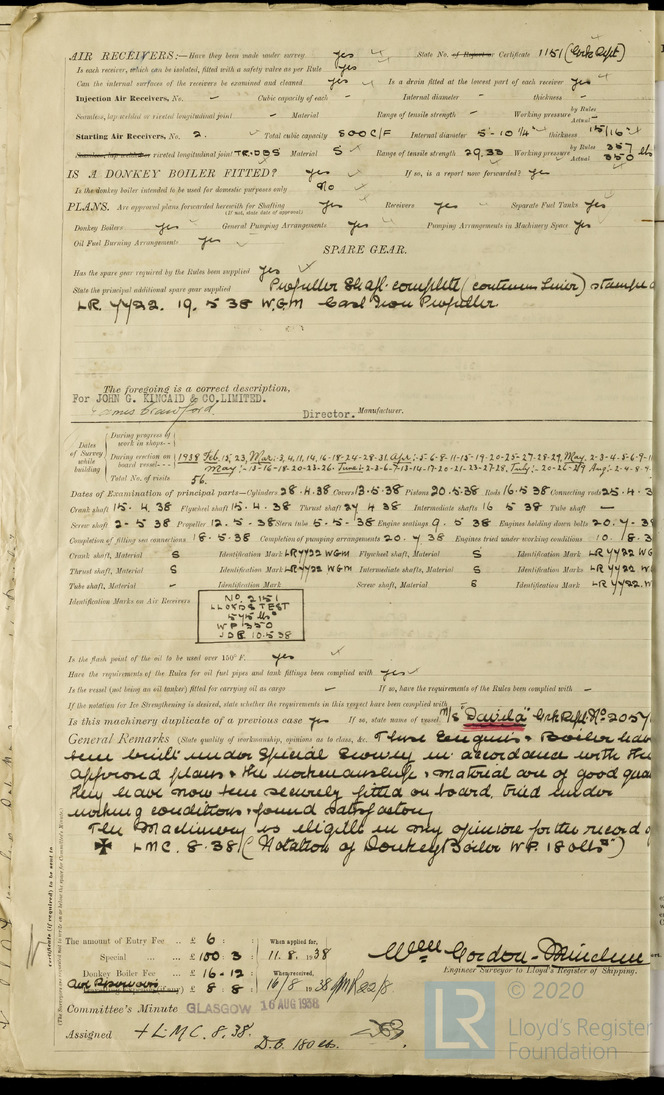 AIR RECEIVERS:— Have they been made under survey yes State No. of Report or Certificate 1151 (Grk Rept)
Is each receiver, which can be isolated, fitted with a safety valve as per Rule yes
Can the internal surfaces of the receivers be examined and cleaned yes Is a drain fitted at the lowest part of each receiver yes
Injection Air Receivers, No. - Cubic capacity of each - Internal diameter - thickness -
Seamless, lap welded or riveted longitudinal joint - Material - Range of tensile strength - Working pressure by Rules Actual -
Starting Air Receivers, No. 2. Total cubic capacity 800 C/F Internal diameter 5'-10 1/4" thickness 15/16"
Seamless, lap welded or riveted longitudinal joint TR:DBS Material S Range of tensile strength 29.33 Working pressure by Rules 357 Actual 350 lbs
IS A DONKEY BOILER FITTED? yes If so, is a report now forwarded? yes
Is the donkey boiler intended to be used for domestic purposes only No
PLANS. Are approved plans forwarded herewith for Shafting yes Receivers yes Separate Fuel Tanks yes
(If not, state date of approval)
Donkey Boilers yes General Pumping Arrangements yes Pumping Arrangements in Machinery Space yes
Oil Fuel Burning Arrangements yes
SPARE GEAR.
Has the spare gear required by the Rules been supplied yes
State the principal additional spare gear supplied Propeller Shaft complete (continuous Liner) stamped
LR 4422. 19. 5 38 W.G.M Cast Iron Propeller.
The foregoing is a correct description,
For JOHN G. KINCAID & CO. LIMITED.
James Crawford
Director. Manufacturer.
Dates of Survey while building
During progress of work in shops - -
During erection on board vessel - - - 1938 Feb. 15, 23, Mar: 3, 4, 11, 14, 16-18-24-28-31. Apr: 5-6-8-11-15-19-20-25-27-28-29, May. 2-3-4-5-6-9-11
May:-13-16-18-20-23-26. June:-2-3-6-7-13-14-17-20-21-23-27-28, July:-20-26-29 Aug:-2-4-8-9.
Total No. of visits 56.
Dates of Examination of principal parts—Cylinders 28.4.38 Covers 13.5.38 Pistons 20.5.38 Rods 16.5 38 Connecting rods 25.4.3
Crank shaft 15. 4. 38 Flywheel shaft 15. 4. 38 Thrust shaft 29 4 38 Intermediate shafts 16 5 38 Tube shaft -
Screw shaft 2-5 38 Propeller 12.5-38 Stern tube 5-5-38 Engine seatings 9. 5 38 Engines holding down bolts 20.7-38
Completion of fitting sea connections 18-5.38 Completion of pumping arrangements 20.7 38 Engines tried under working conditions 10. 8.3
Crank shaft, Material S Identification Mark LR 4422 WGM Flywheel shaft, Material S Identification Mark LR 4422 WG
Thrust shaft, Material S Identification Mark LR 4422 WGM Intermediate shafts, Material S Identification Marks LR 4422 W
Tube shaft, Material - Identification Mark Screw shaft, Material S Identification Mark LR 4422. W
Identification Marks on Air Receivers
NO. 2151
LLOYDS TEST
575 lbs
WP 350
JDR 10.5 38
Is the flash point of the oil to be used over 150° F. yes
Have the requirements of the Rules for oil fuel pipes and tank fittings been complied with yes
Is the vessel (not being an oil tanker) fitted for carrying oil as cargo - If so, have the requirements of the Rules been complied with -
If the notation for Ice Strengthening is desired, state whether the requirements in this respect have been complied with
Is this machinery duplicate of a previous case yes If so, state name of vessel M/S "Davila" Grk Rept. No 20571
General Remarks (State quality of workmanship, opinions as to class, &c. These Engines & Boiler have
been built under Special Survey in accordance with the
approved plans & the workmanship & material are of good qua
they have now been securely fitted on board, tried under
working conditions & found satisfactory.
The Machinery is eligible in my opinion for the record of
✠ LMC. 8.38 (Notation of Donkey Boiler WP. 180 lbs")
certificate (if required) to be sent to
(The Surveyors are requested not to write on or below the space for Committee's Minute.)
The amount of Entry Fee .. £ 6 When applied for,
Special ... £ 100 : 3 11. 8. 1938
Donkey Boiler Fee ... £ 16-12 When received,
Air Receivers £ 8 8 16/8 1938
Wm Gordon-
Engineer Surveyor to Lloyd's Register of Shipping.
Committee's Minute GLASGOW 16 AUG 1938
Assigned + LMC. 8.38.
D.B. 180 lbs.
LR
© 2020
Lloyd's Register
Foundation